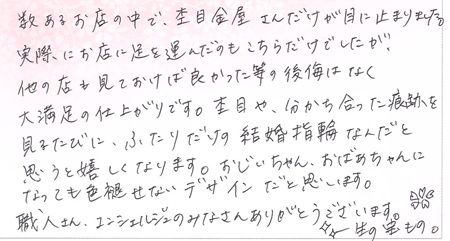 数あるお店の中で、杢目金屋さんだけが目に止まりました。
実際にお店に足を運んだのもこちらだけでしたが、
他の店も見ておけば良かった等の後悔はなく
大満足の仕上がりです。杢目や、分かち合った痕跡を
見るたびに、ふたりだけの結婚指輪なんだと
思うと嬉しくなります。おじいちゃん、おばあちゃんに
なっても色褪せないデザインだと思います。
職人さん、コンシェルジュのみなさんありがとうございます。
一生の宝もの。